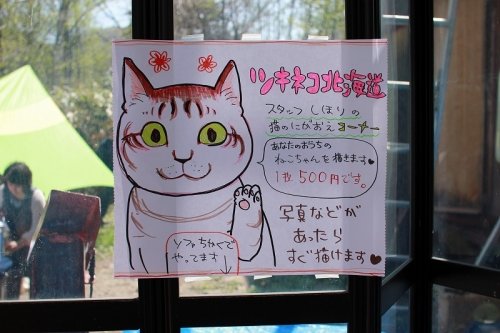 ツキネコ北海道
スタッフ しほりの
猫のにがおえコーナー
あなたのおうちの
ねこちゃんを描きます♥
1枚 500円です。
写真などが
あったら
すぐ描けます♥
ソファちかくで
やってます
↓